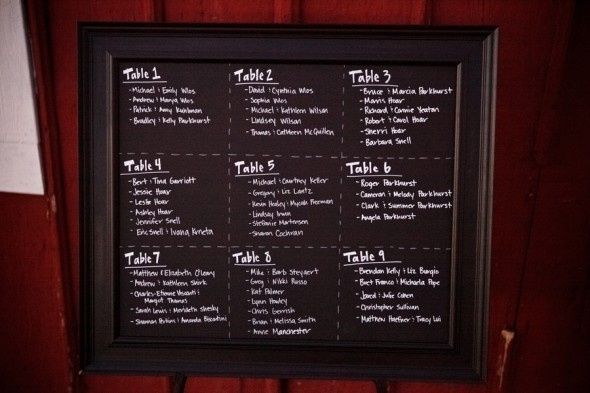 Table 1
- Michael & Emily Wlos
- Andrew & Manya Wlos
- Patrick & Amy Kuhlman
- Bradley & Kelly Parkhurst
Table 2
- David & Cynthia Wlos
- Sophia Wlos
- Michael & Kathleen Wilson
- Lindsey Wilson
- Thomas & Cathleen McQuillen
Table 3
- Bruce & Marcia Parkhurst
- Morris Hoar
- Richard & Connie Yeatan
- Robert & Carol Hoar
- Sherri Hoar
- Barbara Snell
Table 4
- Bert & Tina Garriott
- Jessie Hoar
- Leslie Hoar
- Ashley Hoar
- Jennifer Snell
- Eric Snell & Ivana Krneta
Table 5
- Michael & Courtney Keller
- Gregory & Liz Lantz
- Kevin Hooley & Mycah Freeman
- Lindsay Irwin
- Stefanie Mortensen
- Sharon Cochran
Table 6
- Roger Parkhurst
- Cameron & Melody Parkhurst
- Clark & Summer Parkhurst
- Angela Parkhurst
Table 7
- Matthew & Elizabeth O'Leary
- Andrew & Kathleen Shirk
- Charles-Etienne &
Margot Thomas
- Sarah Lewis & Merideth Shesky
- Shannon & Amanda
Table 8
- Mike & Barb Steyaert
- Greg & Nikki Russo
- Kat Palmer
- Lynn Hawley
- Chris Gerrish
- Brian & Melissa Smith
- Anne Manchester
Table 9
- Brendan Kelly & Liz Bungio
- Bret Franco & Michaela Pape
- Jared & Julie Cohen
- Christopher Sullivan
- Matthew Haefner & Tracy Lui